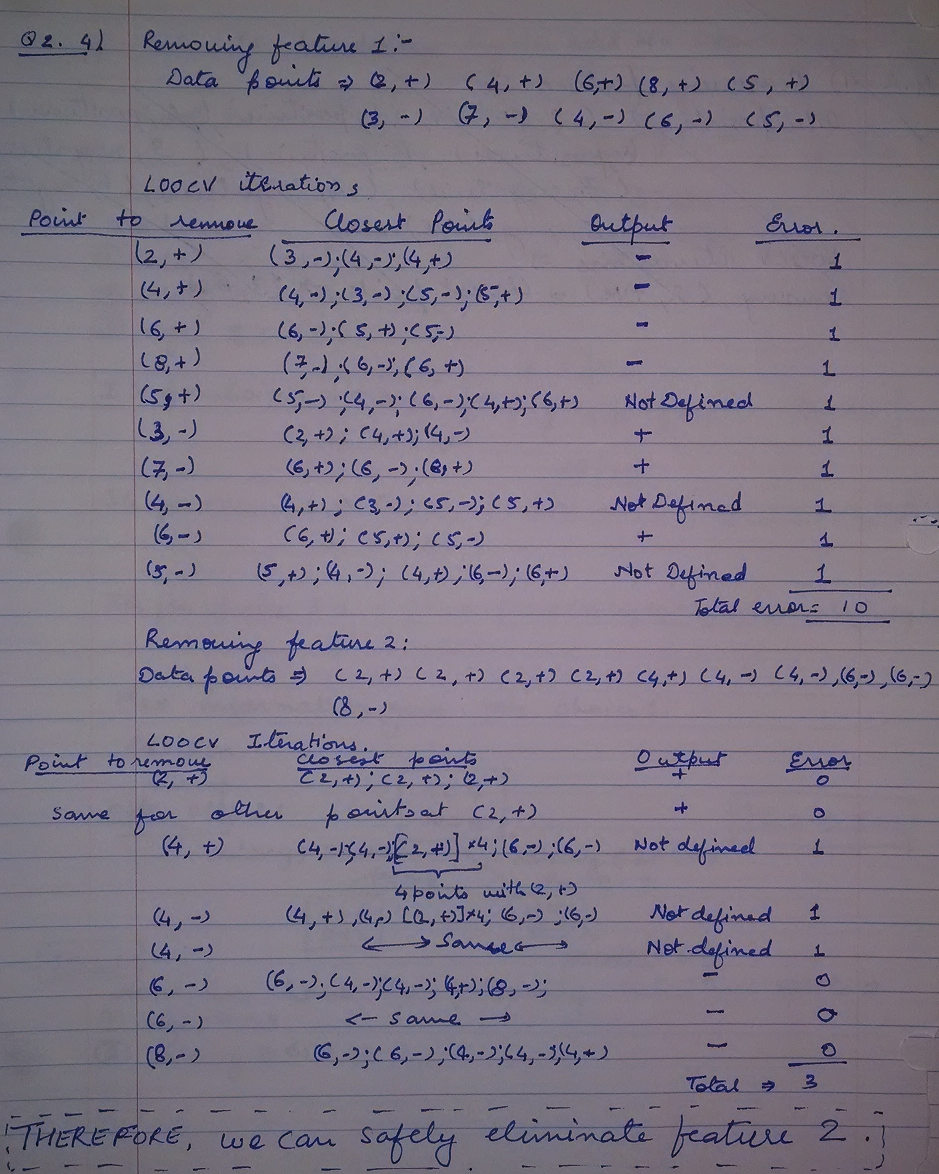 Q2. 4) Removing feature 1:-
Data points ⇒ (2,+) (4,+) (6,+) (8,+) (5,+)
(3,-) (7,-) (4,-) (6,-) (5,-)
LOOCV iterations
Point to remove Closest Points Output Error.
(2,+) (3,-);(4,-);(4,+) - 1
(4,+) (4,-);(3,-);(5,-);(5,+) - 1
(6,+) (6,-);(5,+);(5,-) - 1
(8,+) (7,-);(6,-);(6,+) - 1
(5,+) (5,-);(4,-);(6,-);(4,+);(6,+) Not Defined 1
(3,-) (2,+);(4,+);(4,-) + 1
(7,-) (6,+);(6,-);(8,+) + 1
(4,-) (4,+);(3,-);(5,-);(5,+) Not Defined 1
(6,-) (6,+);(5,+);(5,-) + 1
(5,-) (5,+);(4,-);(4,+);(6,-);(6,+) Not Defined 1
Total error = 10
Removing feature 2:
Data points ⇒ (2,+) (2,+) (2,+) (2,+) (4,+) (4,-) (4,-),(6,-),(6,-)
(8,-)
LOOCV Iterations.
Point to remove Closest points Output Error
(2,+) (2,+);(2,+);(2,+) + 0
Same for other points at (2,+) + 0
(4,+) (4,-);(4,-);[(2,+)]×4;(6,-);(6,-) Not defined 1
4 points with (2,+)
(4,-) (4,+),(4,-)[(2,+)]×4;(6,-);(6,-) Not defined 1
(4,-) ←→ Same ←→ Not defined 1
(6,-) (6,-);(4,-);(4,-);(4,+);(8,-); - 0
(6,-) ← Same → - 0
(8,-) (6,-);(6,-);(4,-);(4,-);(4,+) - 0
Total ⇒ 3
THEREFORE, we can safely eliminate feature 2.